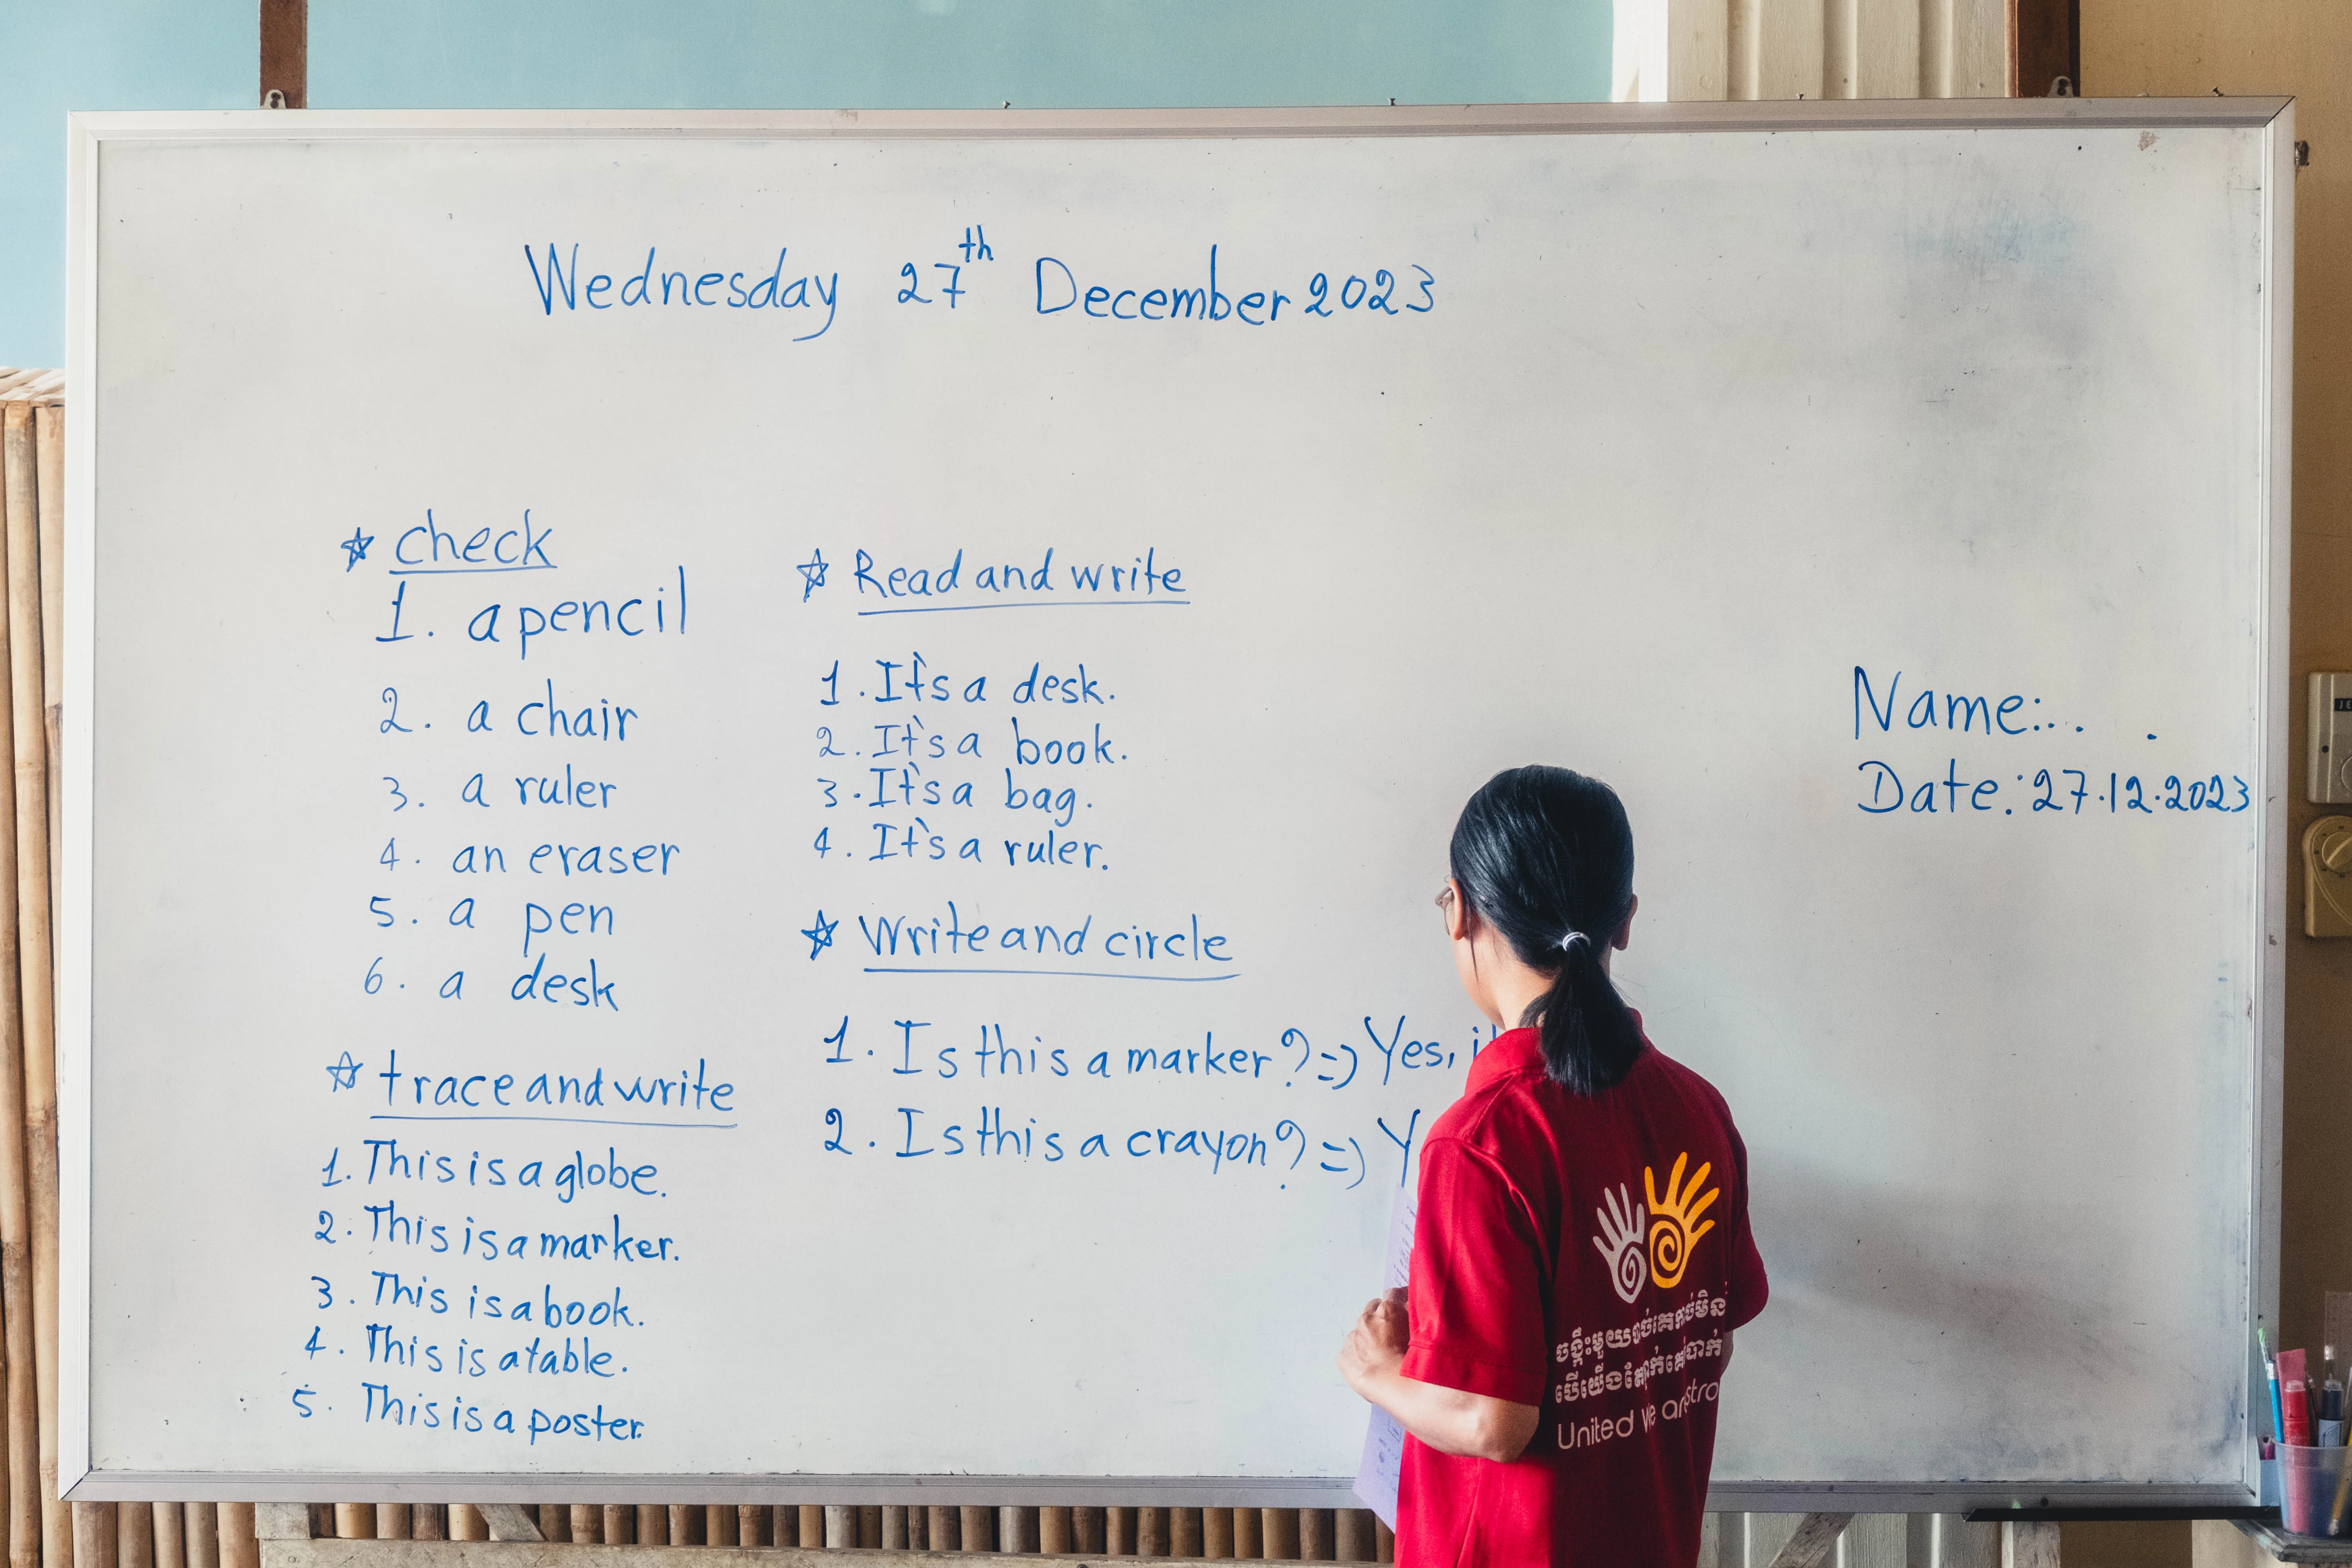 Wednesday 27th December 2023
☆ check
1. a pencil
2. a chair
3. a ruler
4. an eraser
5. a pen
6. a desk
☆ trace and write
1. This is a globe.
2. This is a marker.
3. This is a book.
4. This is a table.
5. This is a poster.
☆ Read and write
1. It's a desk.
2. It's a book.
3. It's a bag.
4. It's a ruler.
☆ Write and circle
1. Is this a marker? => Yes,
2. Is this a crayon? => Y
Name:.. .
Date: 27.12.2023
ចង្កឹះមួយ
បើយើង
United we are stro